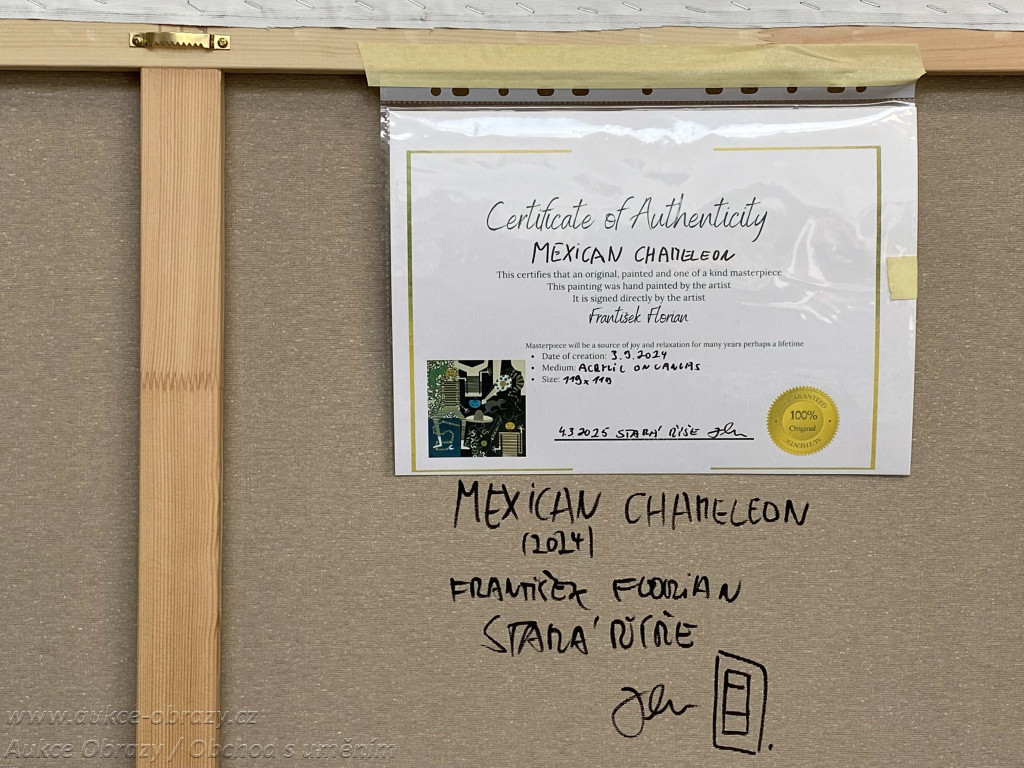 Certificate of Authenticity
MEXICAN CHAMELEON
This certifies that an original, painted and one of a kind masterpiece
This painting was hand painted by the artist
It is signed directly by the artist
František Florian
Masterpiece will be a source of joy and relaxation for many years perhaps a lifetime
• Date of creation: 3.9.2024
• Medium: ACRYLIC ON CANVAS
• Size: 119 x 119
4.3.2025 STARÁ ŘÍŠE
GUARANTEED
100%
Original
AUTHENTIC
MEXICAN CHAMELEON
(2024)
FRANTIŠEK FLORIAN
STARÁ ŘÍŠE
www.aukce-obrazy.cz
Aukce Obrazy / Obchod s uměním